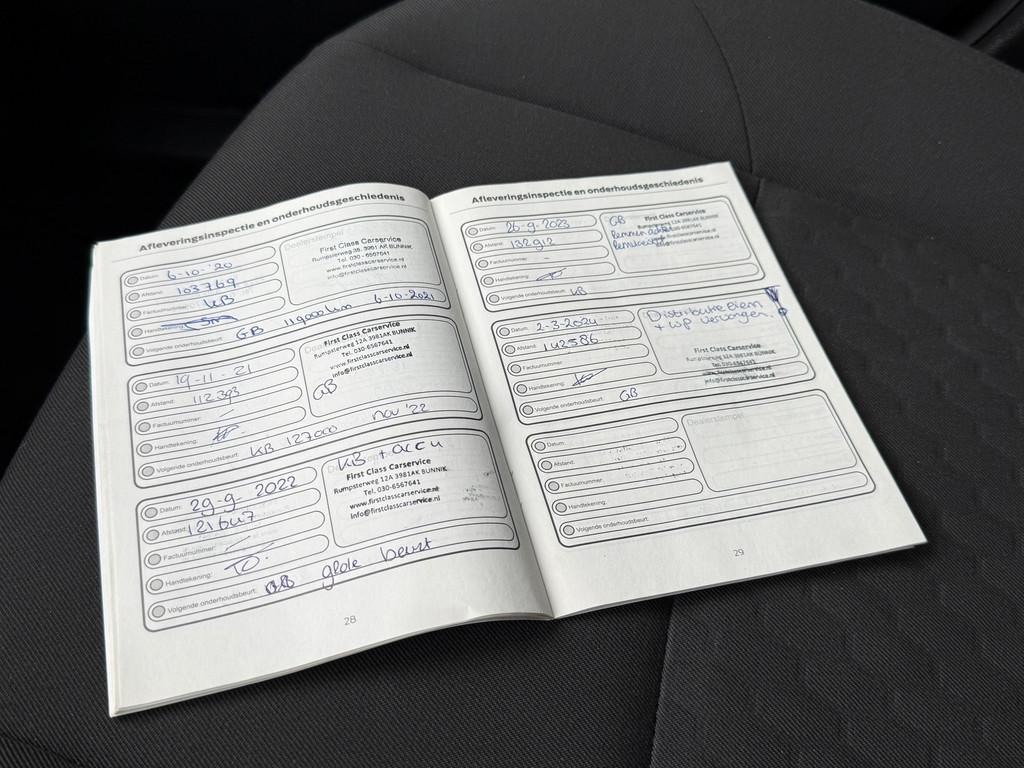 Afleveringsinspectie en onderhoudsgeschiedenis
Datum: 6-10-'20
Afstand: 103769
Factuurnummer: KB
Handtekening:
Volgende onderhoudsbeurt: GB 119000km 6-10-2021
Dealerstempel
First Class Carservice
Rumpsterweg 3B, 3981 AK BUNNIK
Tel. 030 - 6567641
www.firstclasscarservice.nl
info@firstclasscarservice.nl
Datum: 19-11-21
Afstand: 112393
Factuurnummer:
Handtekening:
Volgende onderhoudsbeurt: KB 127000 nov '22
First Class Carservice
Rumpsterweg 12A 3981AK BUNNIK
Tel. 030-6567641
www.firstclasscarservice.nl
info@firstclasscarservice.nl
GB
Datum: 29-9-2022
Afstand: 121647
Factuurnummer:
Handtekening:
Volgende onderhoudsbeurt: GB grote beurt
KB + accu
First Class Carservice
Rumpsterweg 12A 3981AK BUNNIK
Tel. 030-6567641
www.firstclasscarservice.nl
info@firstclasscarservice.nl
28
Afleveringsinspectie en onderhoudsgeschiedenis
Datum: 26-9-2023
Afstand: 132912
Factuurnummer: -
Handtekening:
Volgende onderhoudsbeurt: KB
GB
First Class Carservice
Rumpsterweg 12A 3981AK BUNNIK
Remmen achter
info@firstclasscarservice.nl
Datum: 2-3-2024
Afstand: 142586
Factuurnummer:
Handtekening:
Volgende onderhoudsbeurt: GB
Distributie Riem
+ WP vervangen.
First Class Carservice
Rumpsterweg 12A 3981AK BUNNIK
Tel. 030-6567641
www.firstclasscarservice.nl
info@firstclasscarservice.nl
Datum:
Afstand:
Factuurnummer:
Handtekening:
Volgende onderhoudsbeurt:
Dealerstempel
29